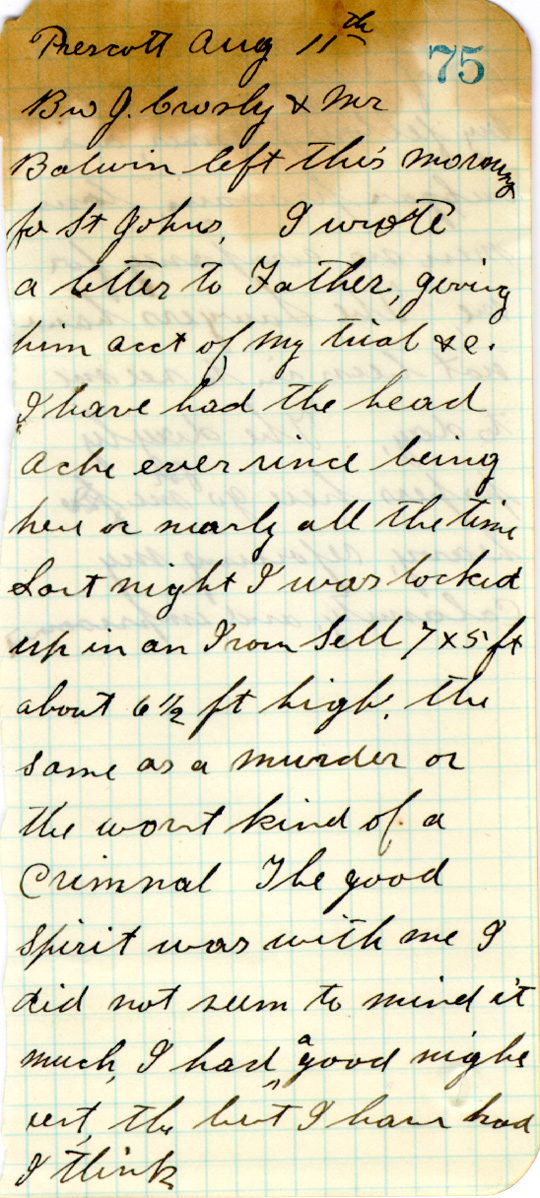 Prescott Aug 11th
75
Bro J. Crosby & Mr
Balwin left this morning
for St Johns, I wrote
a letter to Father, giving
him acct of my trial &c.
I have had the head
Ache ever since being
here or nearly all the time
Last night I was locked
up in an Iron Sell 7 x 5 ft
about 6 1/2 ft high, the
same as a murder or
the worst kind of a
Crimnal The good
Spirit was with me I
did not seem to mind it
much, I had a good nighs
rest, the best I have had
I think